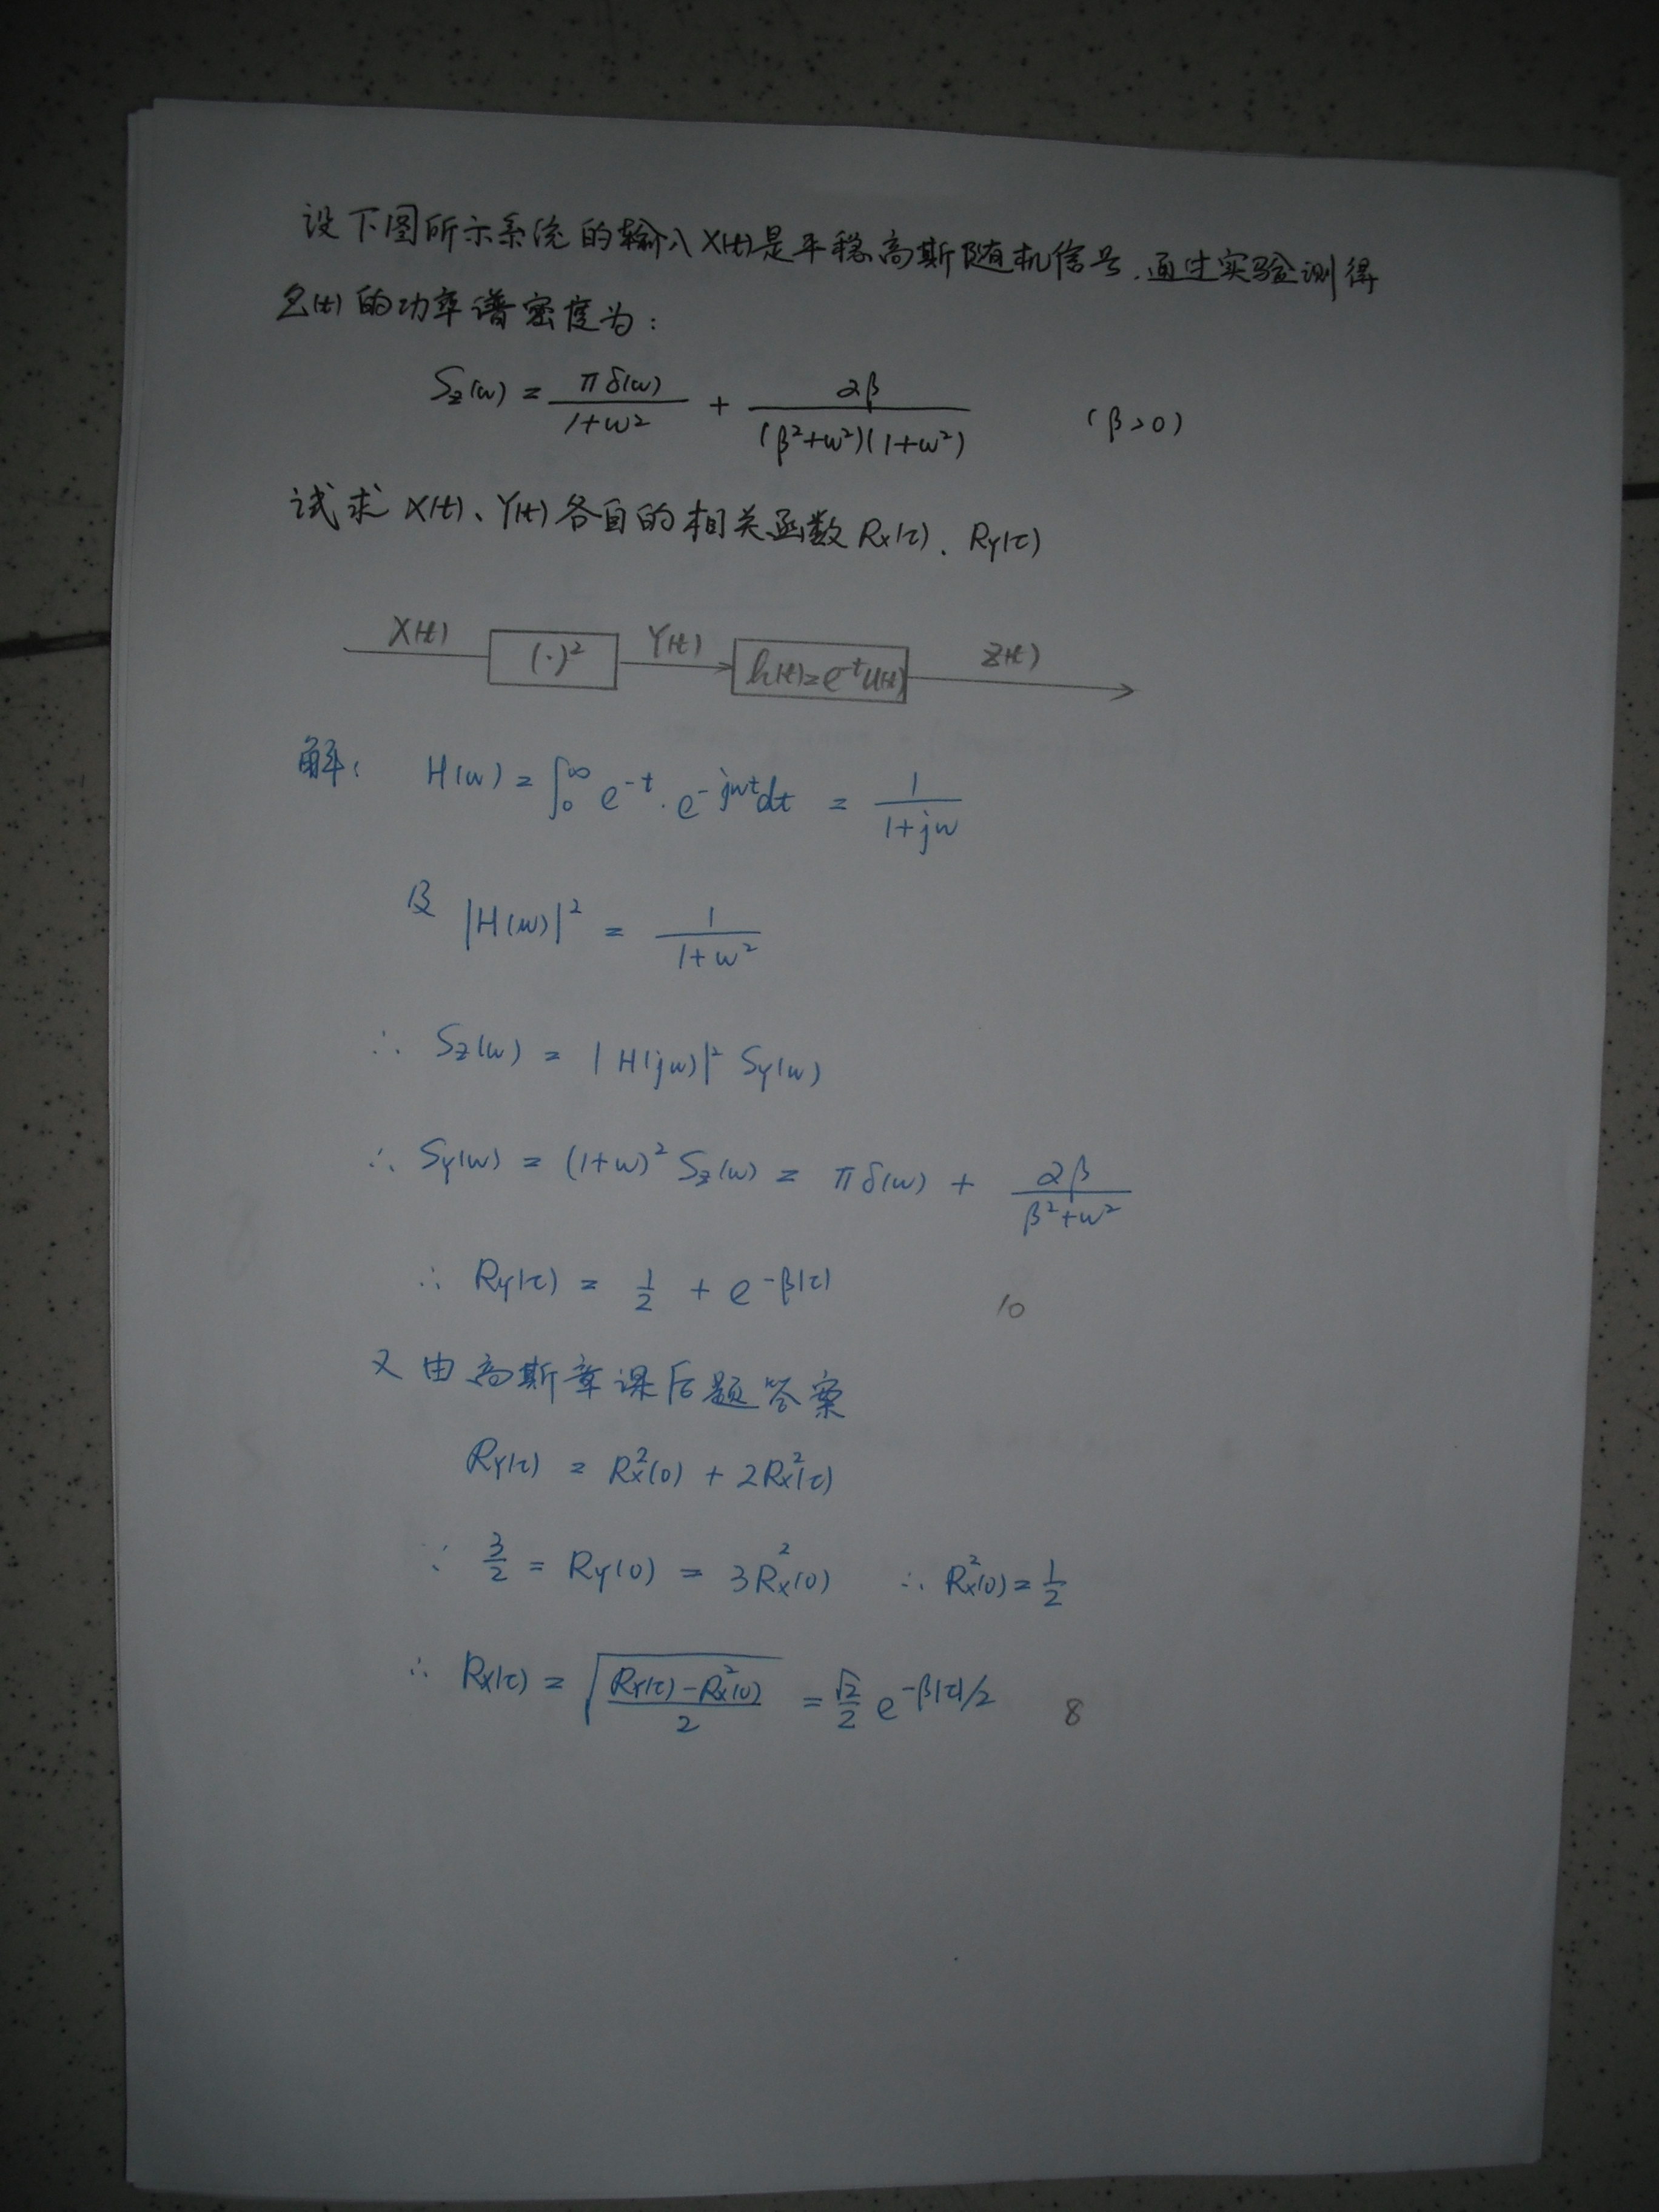 设下图所示系统的输入X(t)是平稳高斯随机信号.通过实验测得
Z(t)的功率谱密度为:
S_z(ω) = πδ(ω)/(1+ω²) + 2β/((β²+ω²)(1+ω²)) (β>0)
试求X(t)、Y(t)各自的相关函数R_X(τ)、R_Y(τ)
X(t) (·)² Y(t) h(t)=e^-t u(t) Z(t)
解: H(ω) = ∫₀^∞ e^-t · e^-jωt dt = 1/(1+jω)
及 |H(ω)|² = 1/(1+ω²)
∴ S_z(ω) = |H(jω)|² S_Y(ω)
∴ S_Y(ω) = (1+ω)² S_z(ω) = πδ(ω) + 2β/(β²+ω²)
∴ R_Y(τ) = 1/2 + e^-β|τ| 10
又由高斯章课后题答案
R_Y(τ) = R_X²(0) + 2R_X²(τ)
∵ 3/2 = R_Y(0) = 3R_X²(0) ∴ R_X²(0) = 1/2
∴ R_X(τ) = √((R_Y(τ) - R_X²(0))/2) = √2/2 e^-β|τ|/2 8